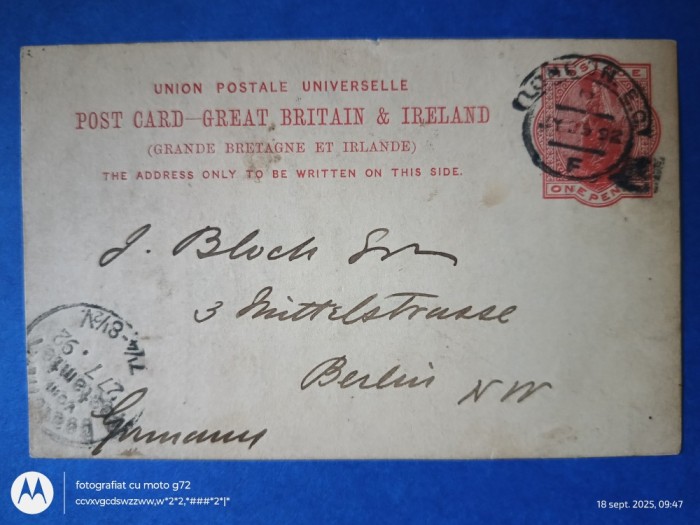 UNION POSTALE UNIVERSELLE
POST CARD—GREAT BRITAIN & IRELAND
(GRANDE BRETAGNE ET IRLANDE)
THE ADDRESS ONLY TO BE WRITTEN ON THIS SIDE.
LONDON E.C.
F
ONE PENNY
J. Bloch
3 Mittelstrasse
Berlin N W
Germany
Bestellt
vom
Postamte 7
27 7 . 92
7¼-8½V.
fotografiat cu moto g72
ccvxvgcdswzzww,w*2*2,*###*2*|*
18 sept. 2025, 09:47